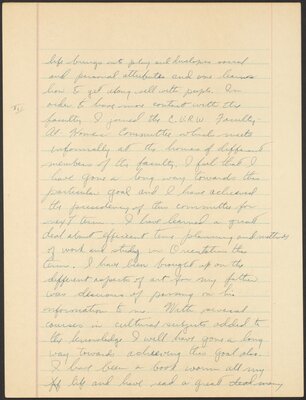 life brings into play and develops social
and personal attributes and one learns
how to get along well with people. In
order to have more contact with the
faculty I joined the C.U.R.W. Faculty-
At Homes Committee which visits
informally at the homes of different
members of the faculty. I feel that I
have gone a long way towards this
particular goal and I have achieved
the presidency of this committee for
next term. I have learned a great
deal about efficient time planning and methods
of work and study in Orientation this
term. I have been brought up on the
different aspects of art for my father
was desirous of passing on his
information to me. With several
courses in cultural subjects added to
this knowledge I will have gone a long
way towards achieving this goal also.
I have been a book worm all my
life and have read a great deal many